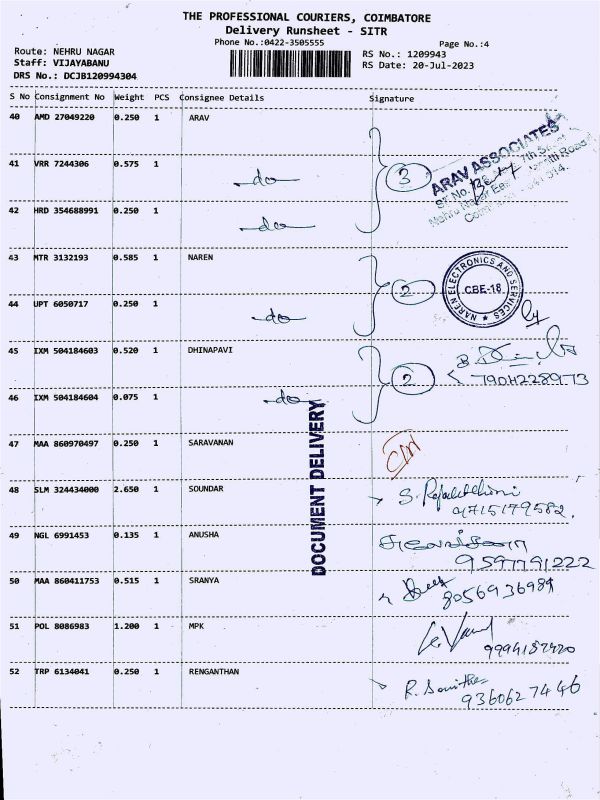 THE PROFESSIONAL COURIERS, COIMBATORE
Delivery Runsheet - SITR
Phone No.:0422-3505555
Page No.:4
Route: NEHRU NAGAR
RS No.: 1209943
Staff: VIJAYABANU
RS Date: 20-Jul-2023
DRS No.: DCJB120994304
S No Consignment No Weight PCS Consignee Details Signature
40 AMD 27049220 0.250 1 ARAV
41 VRR 7244306 0.575 1 -do- 3
ARAV ASSOCIATES
42 HRD 354688991 0.250 1 -do-
43 MTR 3132193 0.585 1 NAREN
2
NAREN ELECTRONICS AND SERVICES
CBE-18
44 UPT 6050717 0.250 1 -do-
45 IXM 504184603 0.520 1 DHINAPAVI
2
7904228973
46 IXM 504184604 0.075 1 -do-
DOCUMENT DELIVERY
47 MAA 860970497 0.250 1 SARAVANAN
48 SLM 324434000 2.650 1 SOUNDAR
9715179582
49 NGL 6991453 0.135 1 ANUSHA
9597791222
50 MAA 860411753 0.515 1 SRANYA
8056936989
51 POL 8086983 1.200 1 MPK
52 TRP 6134041 0.250 1 RENGANTHAN
9360627446